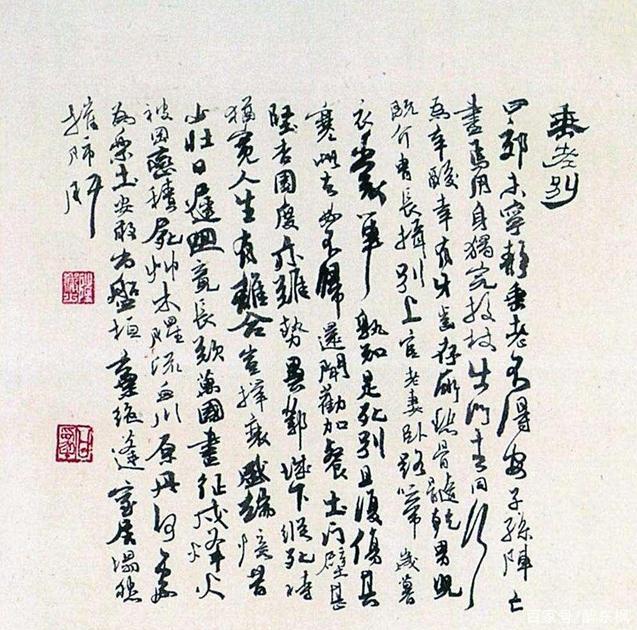 垂老別
四郊未寧靜垂老不得安子孫陣亡
盡焉用身獨完投杖出門去同行
為辛酸幸有牙齒存所悲骨髓乾男兒
既介胄長揖別上官老妻臥路啼歲暮
衣裳單孰知是死別且復傷其
寒此去必不歸還聞勸加餐土門壁甚
堅杏園度亦難勢異鄴城下縱死時
猶寬人生有離合豈擇衰盛端憶昔
少壯日遲迴竟長歎萬國盡征戍烽火
被岡巒積屍艸木腥流血川原丹何鄉
為樂土安敢尚盤桓棄絕蓬室居塌然
摧肺肝
百家号